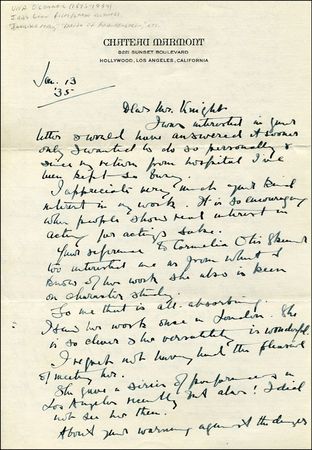 UNA O'CONNOR (1
CHATEAU MARMONT
8221 SUNSET BOULEVARD
HOLLYWOOD, LOS ANGELES, CALIFORNIA
Jan. 13
'35
Dear Mr. Knight
I was interested in your
letter & would have answered it sooner
only I wanted to do so personally &
since my return from hospital I've
been kept so busy.
I appreciate very much your kind
interest in my work. It is so encouraging
when people show real interest in
acting for acting's sake.
Your reference to Cornelia Otis Skinner
too interested me as from what I
know of her work she also is keen
on character study.
To me that is all absorbing.
I saw her work once in London. She
is so clever & her versatility is wonderful
I regret not having had the pleasure
of meeting her.
She gave a series of performances in
Los Angeles recently but alas! I did
not see her then.
About your warning against the danger